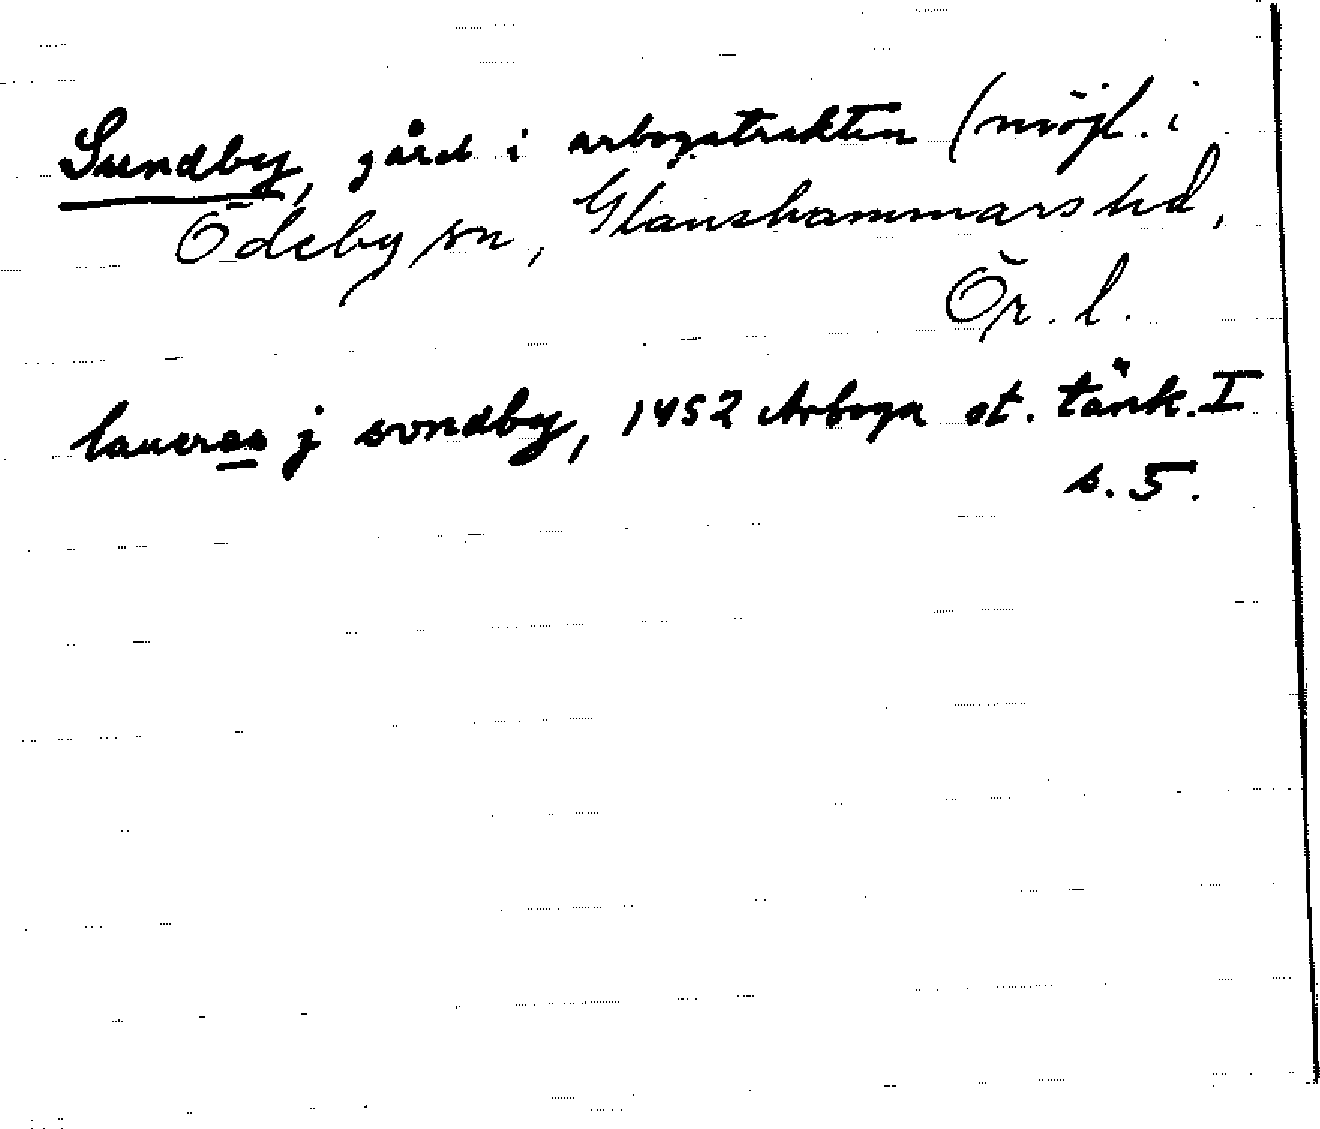 Sundby, gård i arbogatrakten (möjl. i
Ödeby sn, Glanshammars hd,
Ör. l.
laueras j svndby, 1452 Arboga st. tänk. I
s. 5.